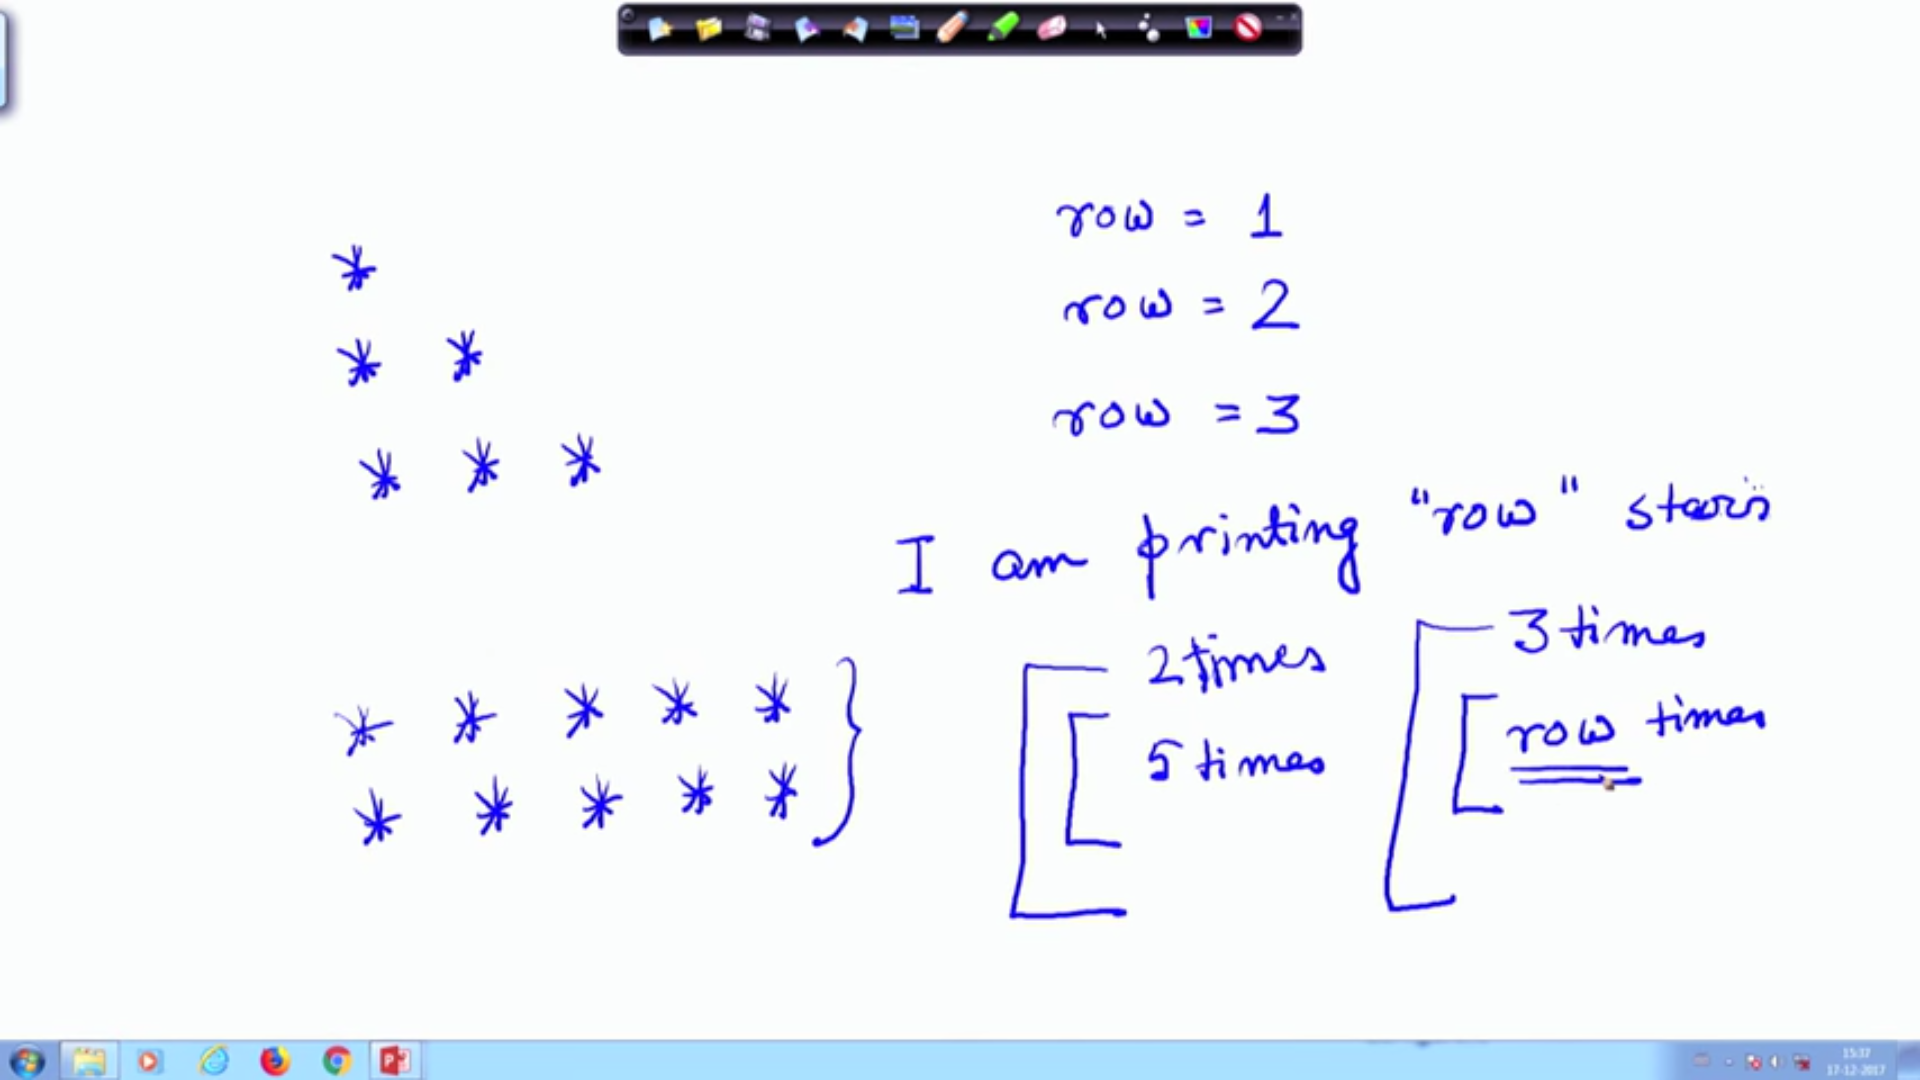 * row = 1
* * row = 2
* * * row = 3
I am printing "row" stars
* * * * * 2 times 3 times
* * * * * 5 times row times
15:37
17-12-2017